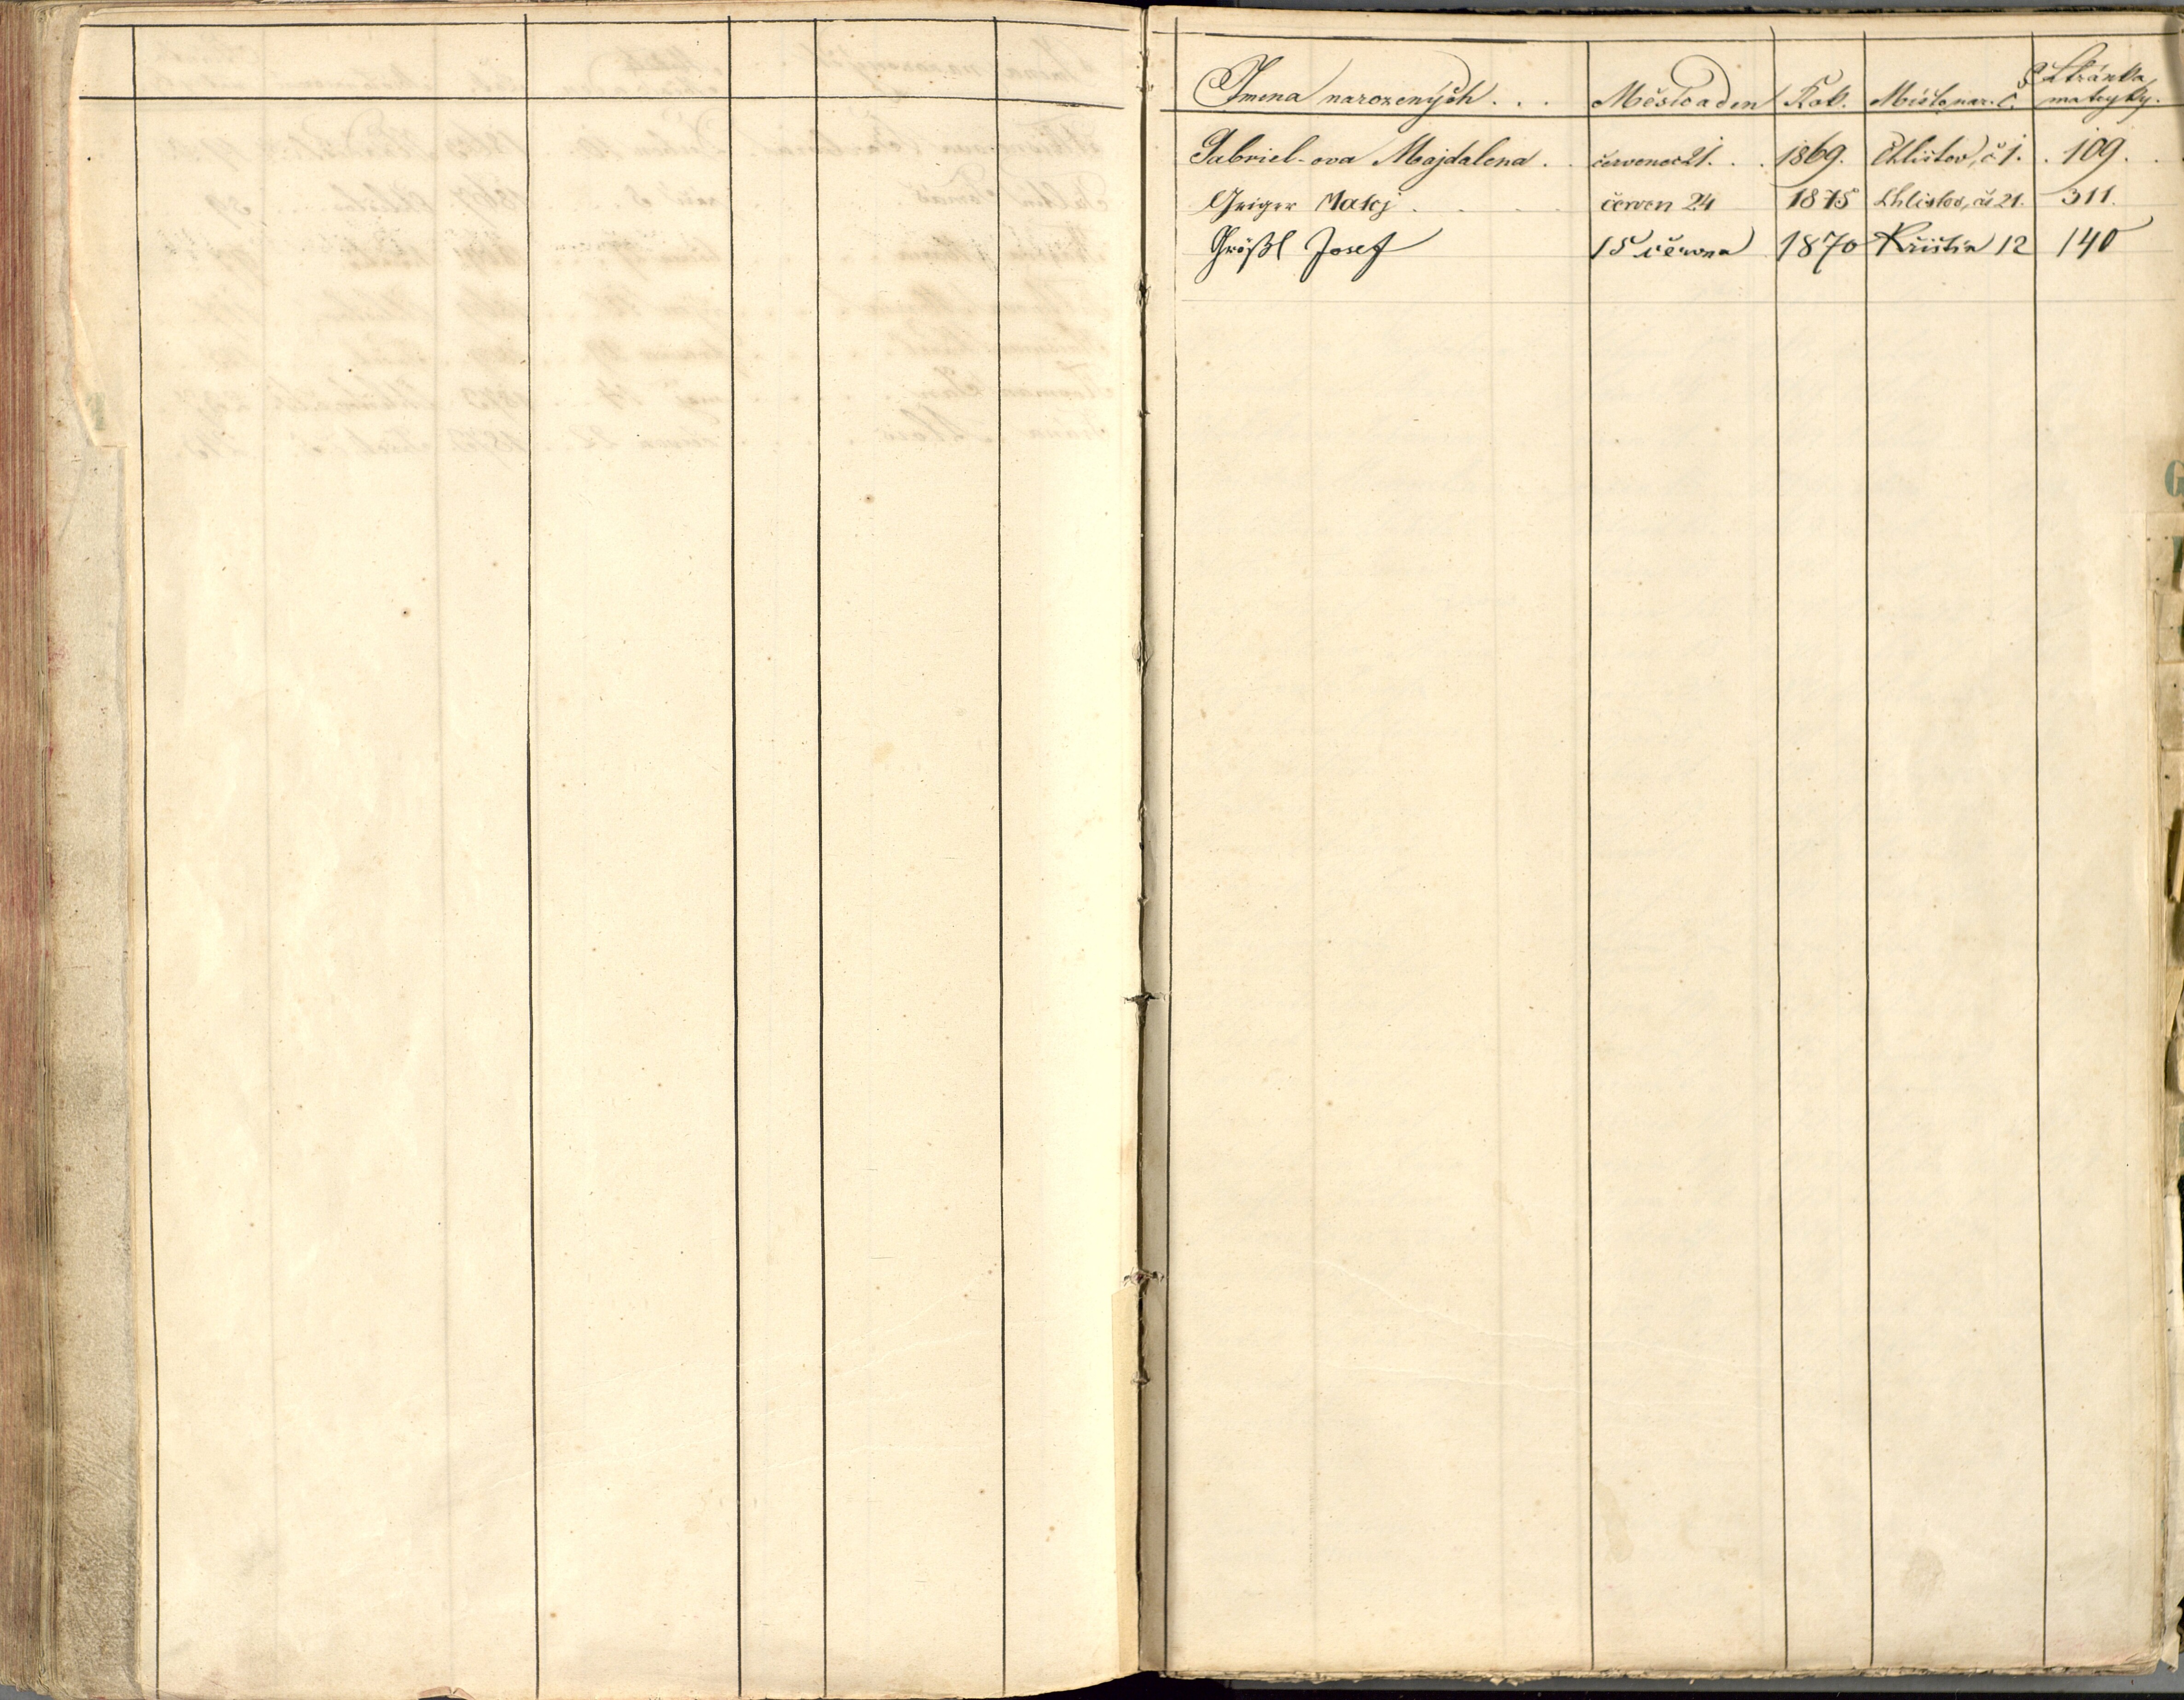 Jmena narozených . . . Měsíc a den Rok. Místo nar. č. Stránka
matryky.
Gabriel-ova Majdalena . . červenec 21. . . 1869. Chlistov, č 1. . 109. .
Geiger Matěj . . . . červen 24 1875 Chlistov, čs 21. 311.
Größl Josef 15 června 1870 Křištín 12 140
G